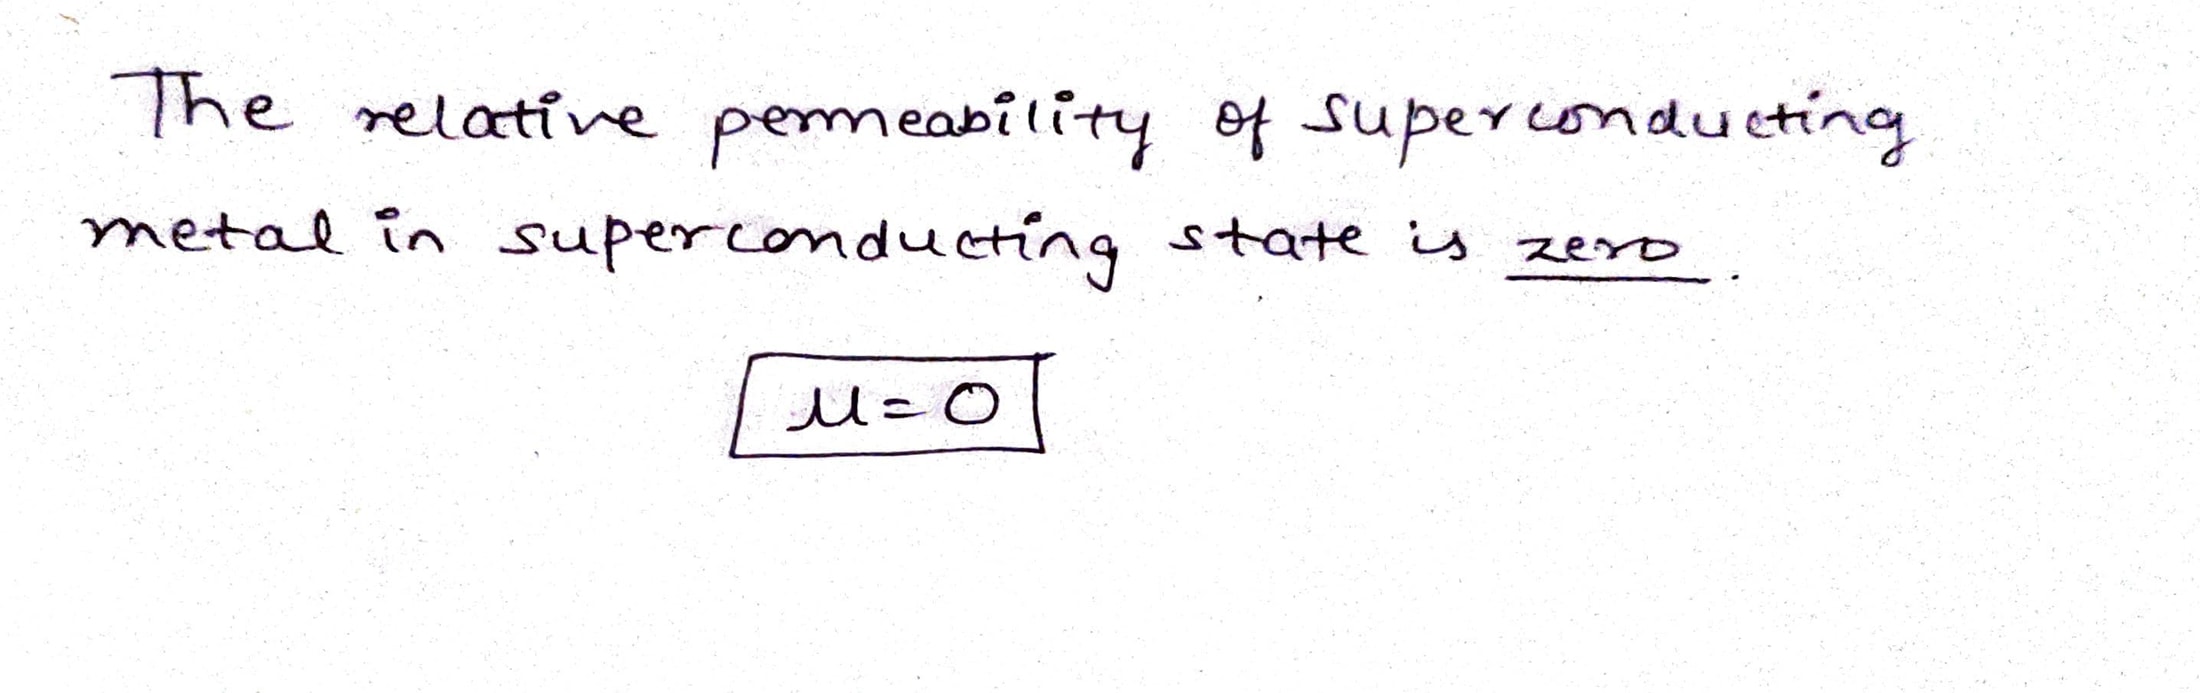 The relative permeability of superconducting
metal in superconducting state is zero.
μ=0